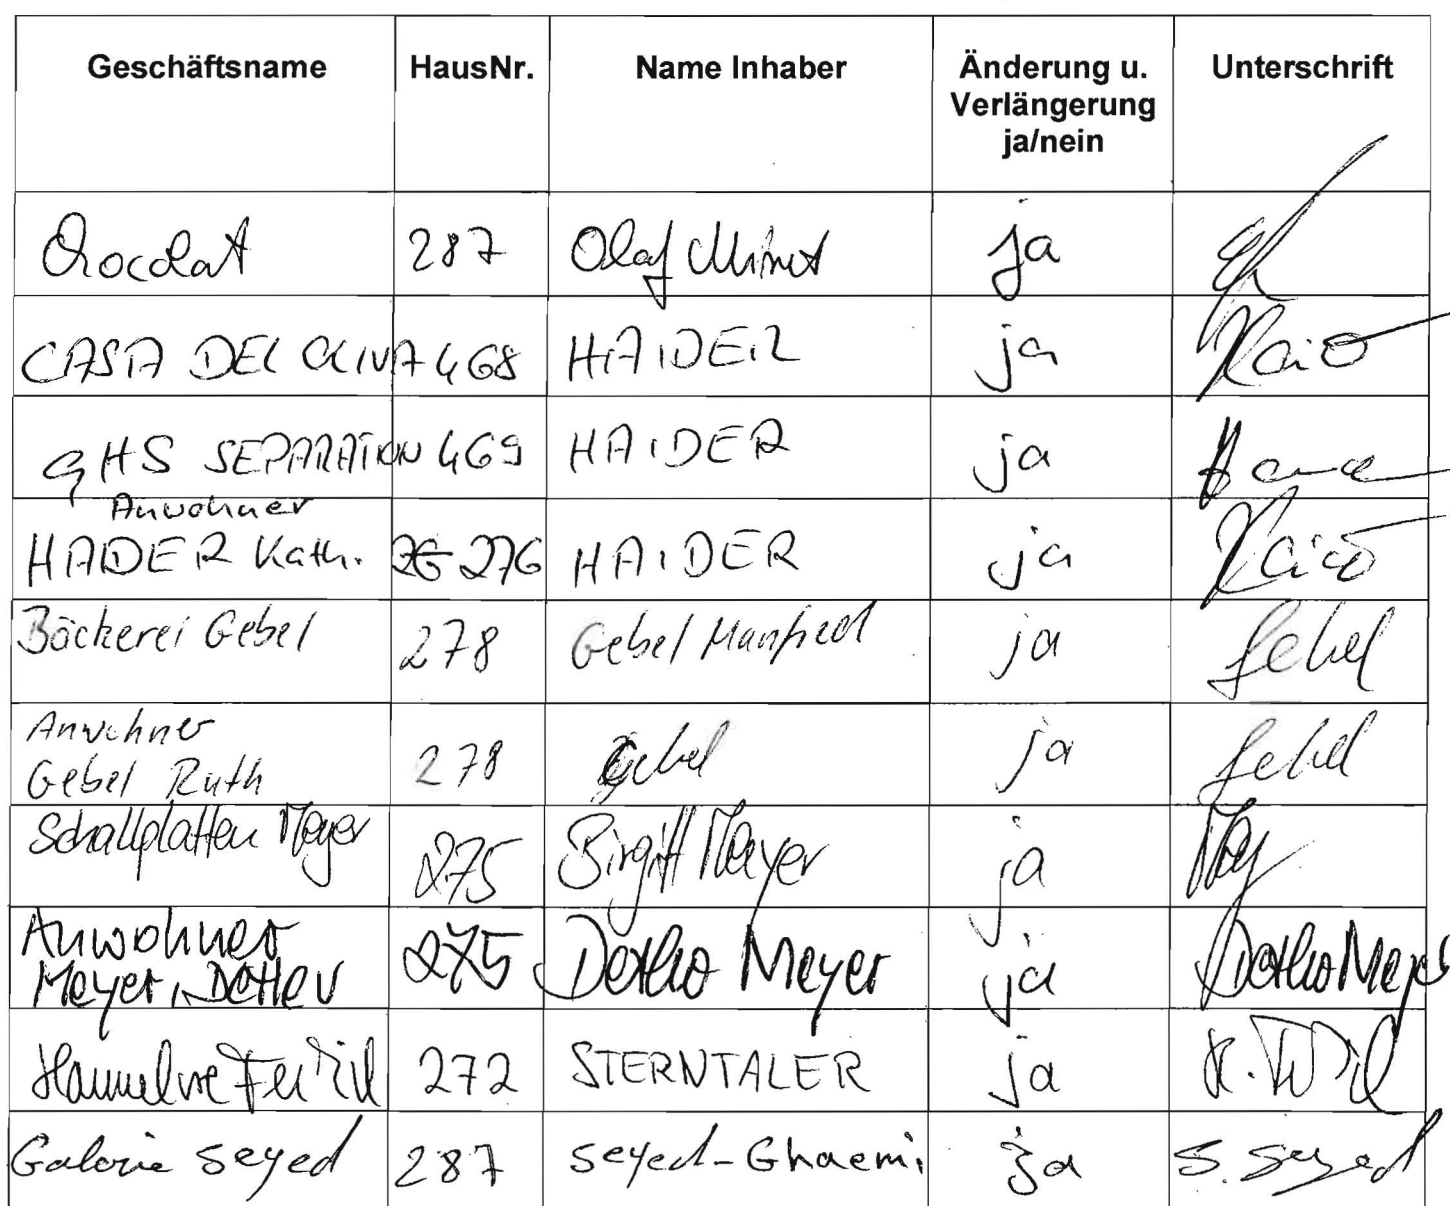 Geschäftsname HausNr. Name Inhaber Änderung u. Verlängerung ja/nein Unterschrift
Chocolat 287 Olaf ja
CASA DEL OLIVA 468 HAIDER ja
GHS SEPARATION 469 HAIDER ja
Anwohner
HAIDER Kath. 276 HAIDER ja
Bäckerei Gebel 278 Gebel Manfred ja Gebel
Anwohner
Gebel Ruth 278 Gebel ja Gebel
Schallplatten Meyer 275 Birgitt Meyer ja Mey
Anwohner
Meyer, Detlev 275 Detlev Meyer ja Detlev Meyer
Hannelore 272 STERNTALER ja
Galerie Seyed 287 Seyed-Ghaemi ja S. Seyed